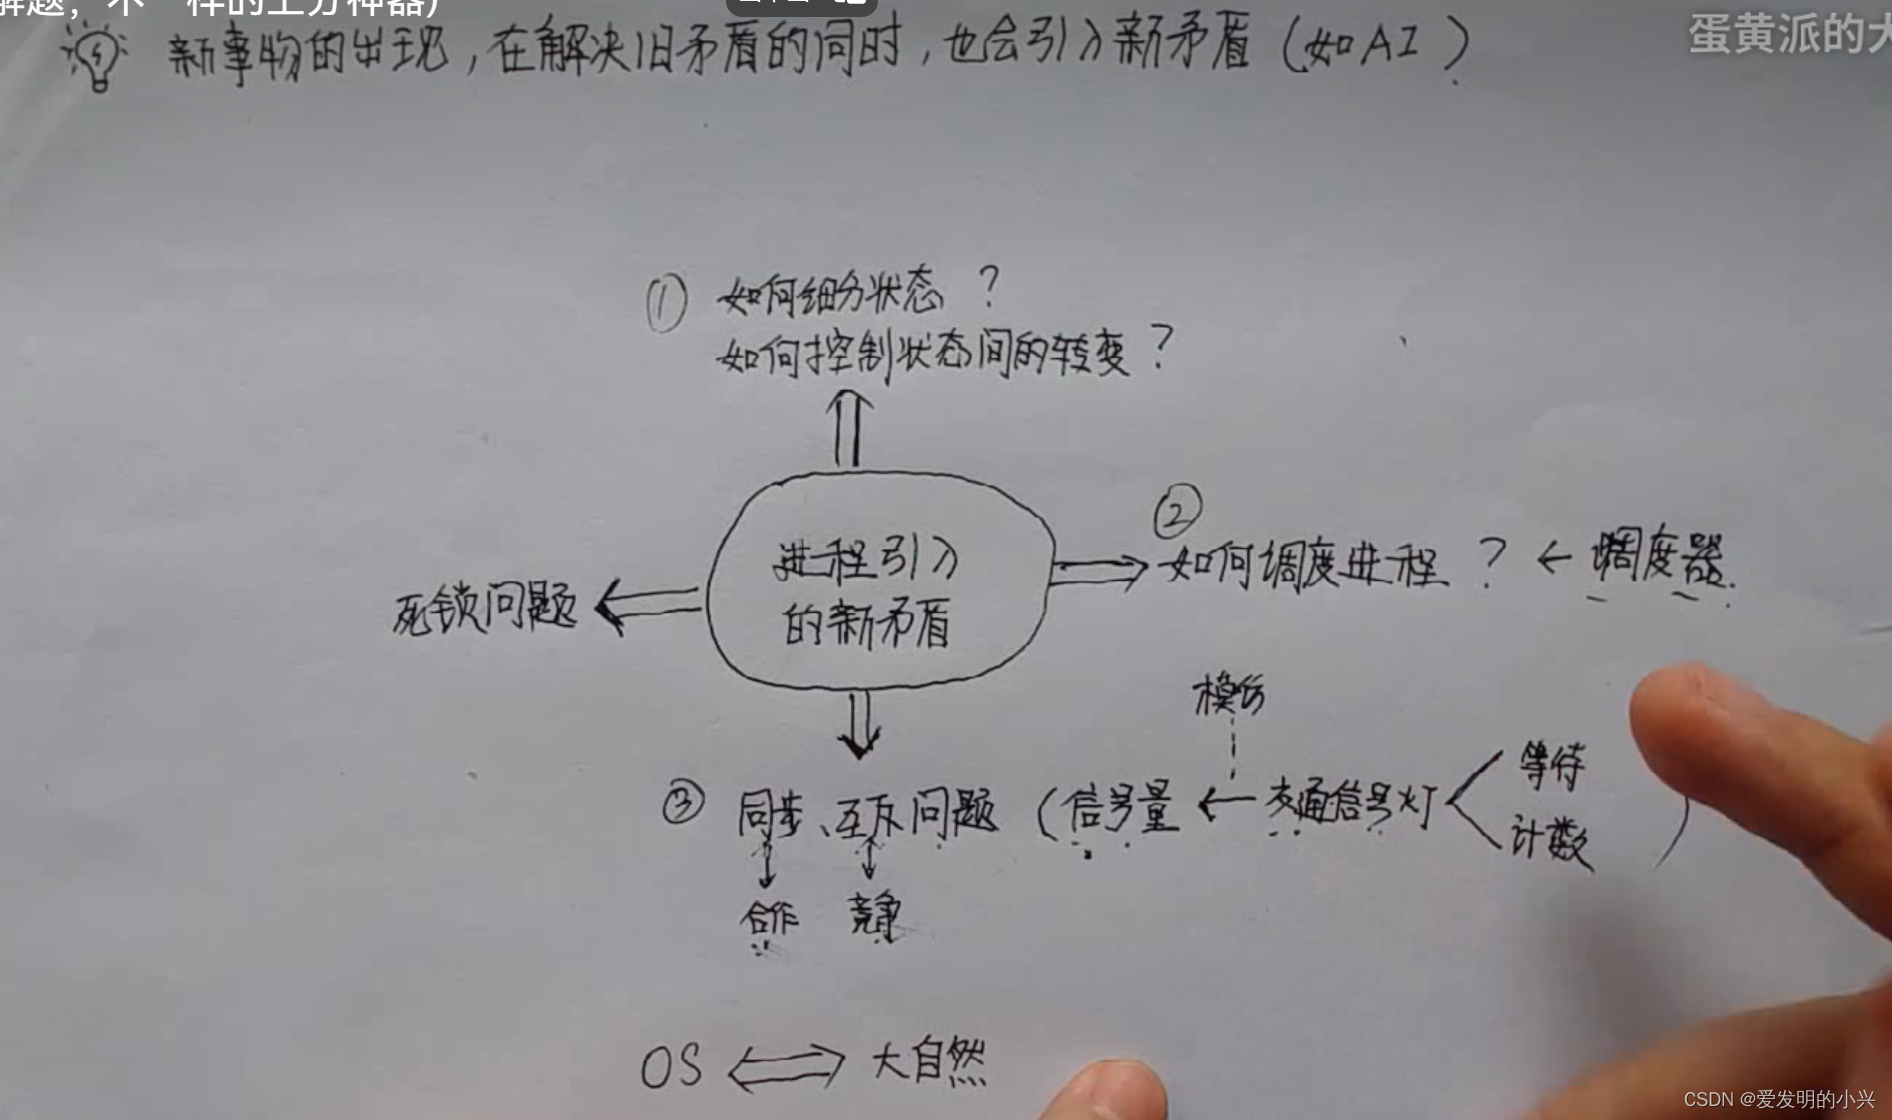 新事物的出现，在解决旧矛盾的同时，也会引入新矛盾（如AI）
蛋黄派的大
① 如何细分状态？
如何控制状态间的转变？
进程引入
的新矛盾
②
如何调度进程？ ← 调度器
死锁问题
模仿
③ 同步、互斥问题（信号量 ← 交通信号灯
等待
计数
）
合作 竞争
OS ⟺ 大自然
CSDN @爱发明的小兴